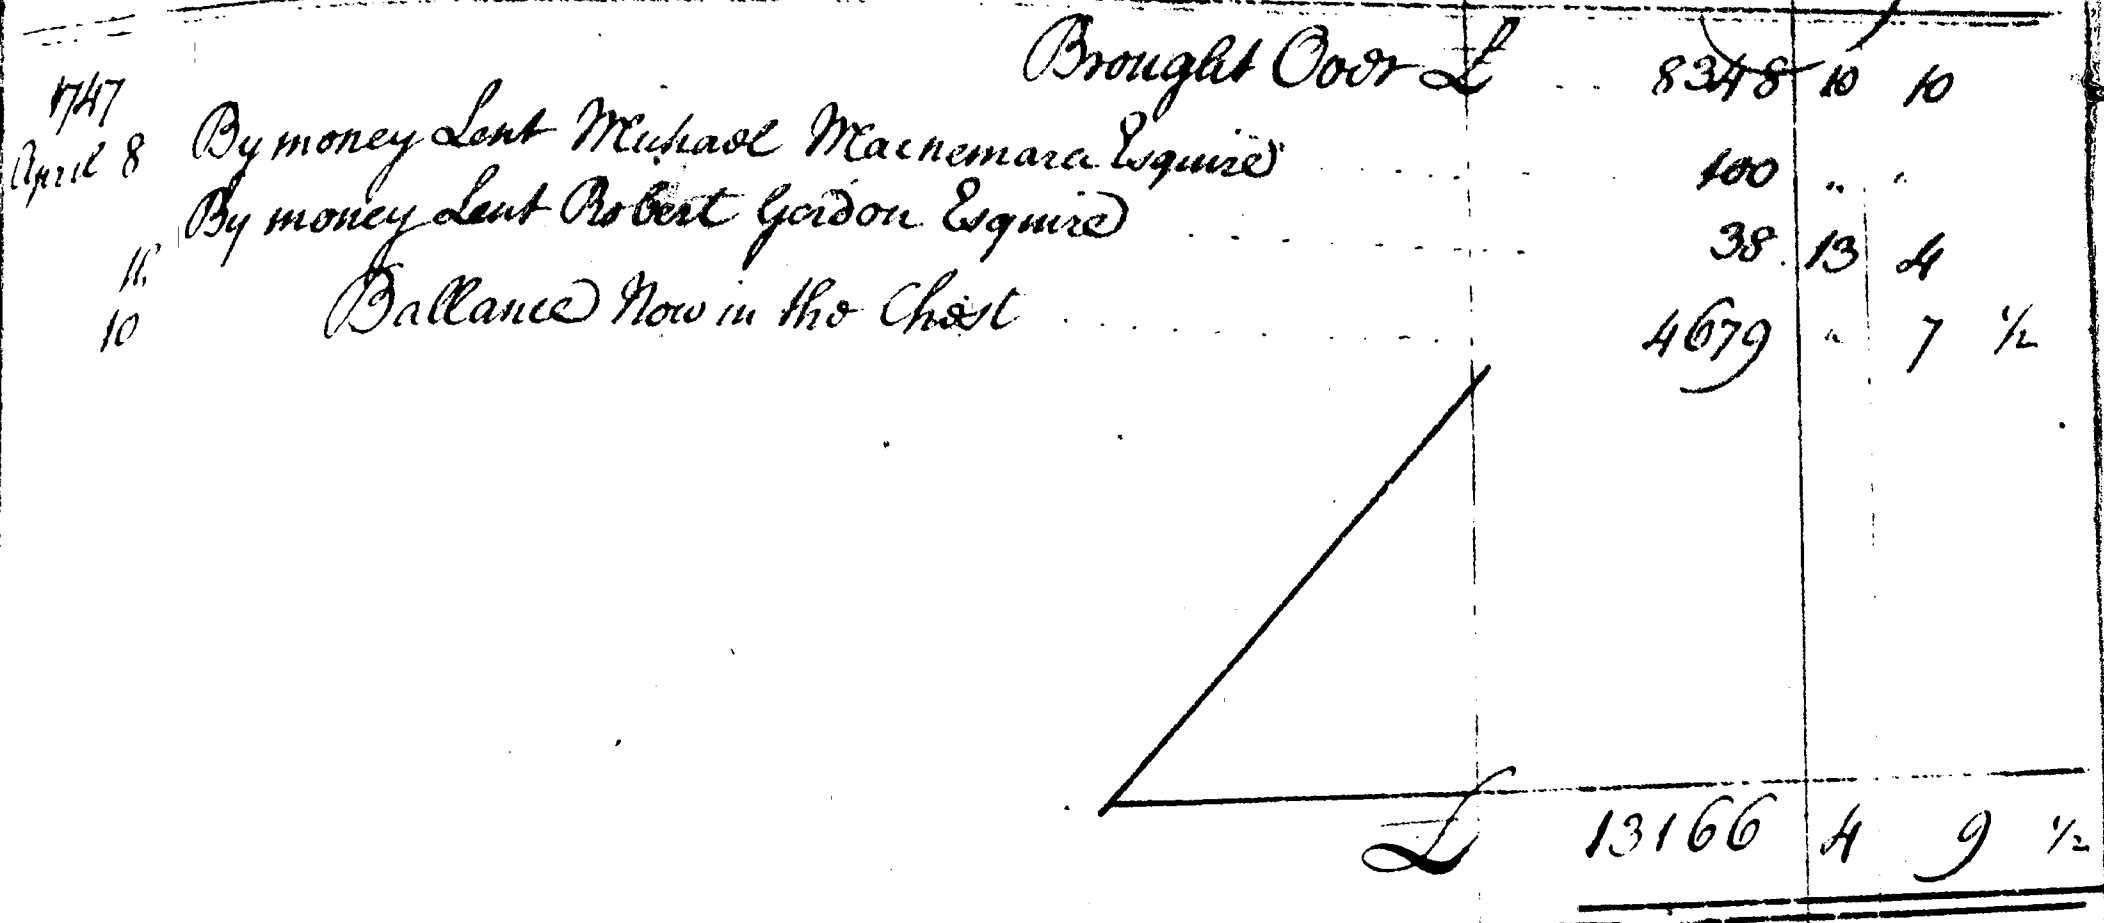 Brought Over £ .. 8348 10 10
1747
April 8 By money Lent Michael Macnemara Esquire ..... 100 " "
By money Lent Robert Gordon Esquire ..... 38. 13 4
10 Ballance Now in the Chest ..... 4679 " 7 ½
£ 13166 4 9 ½